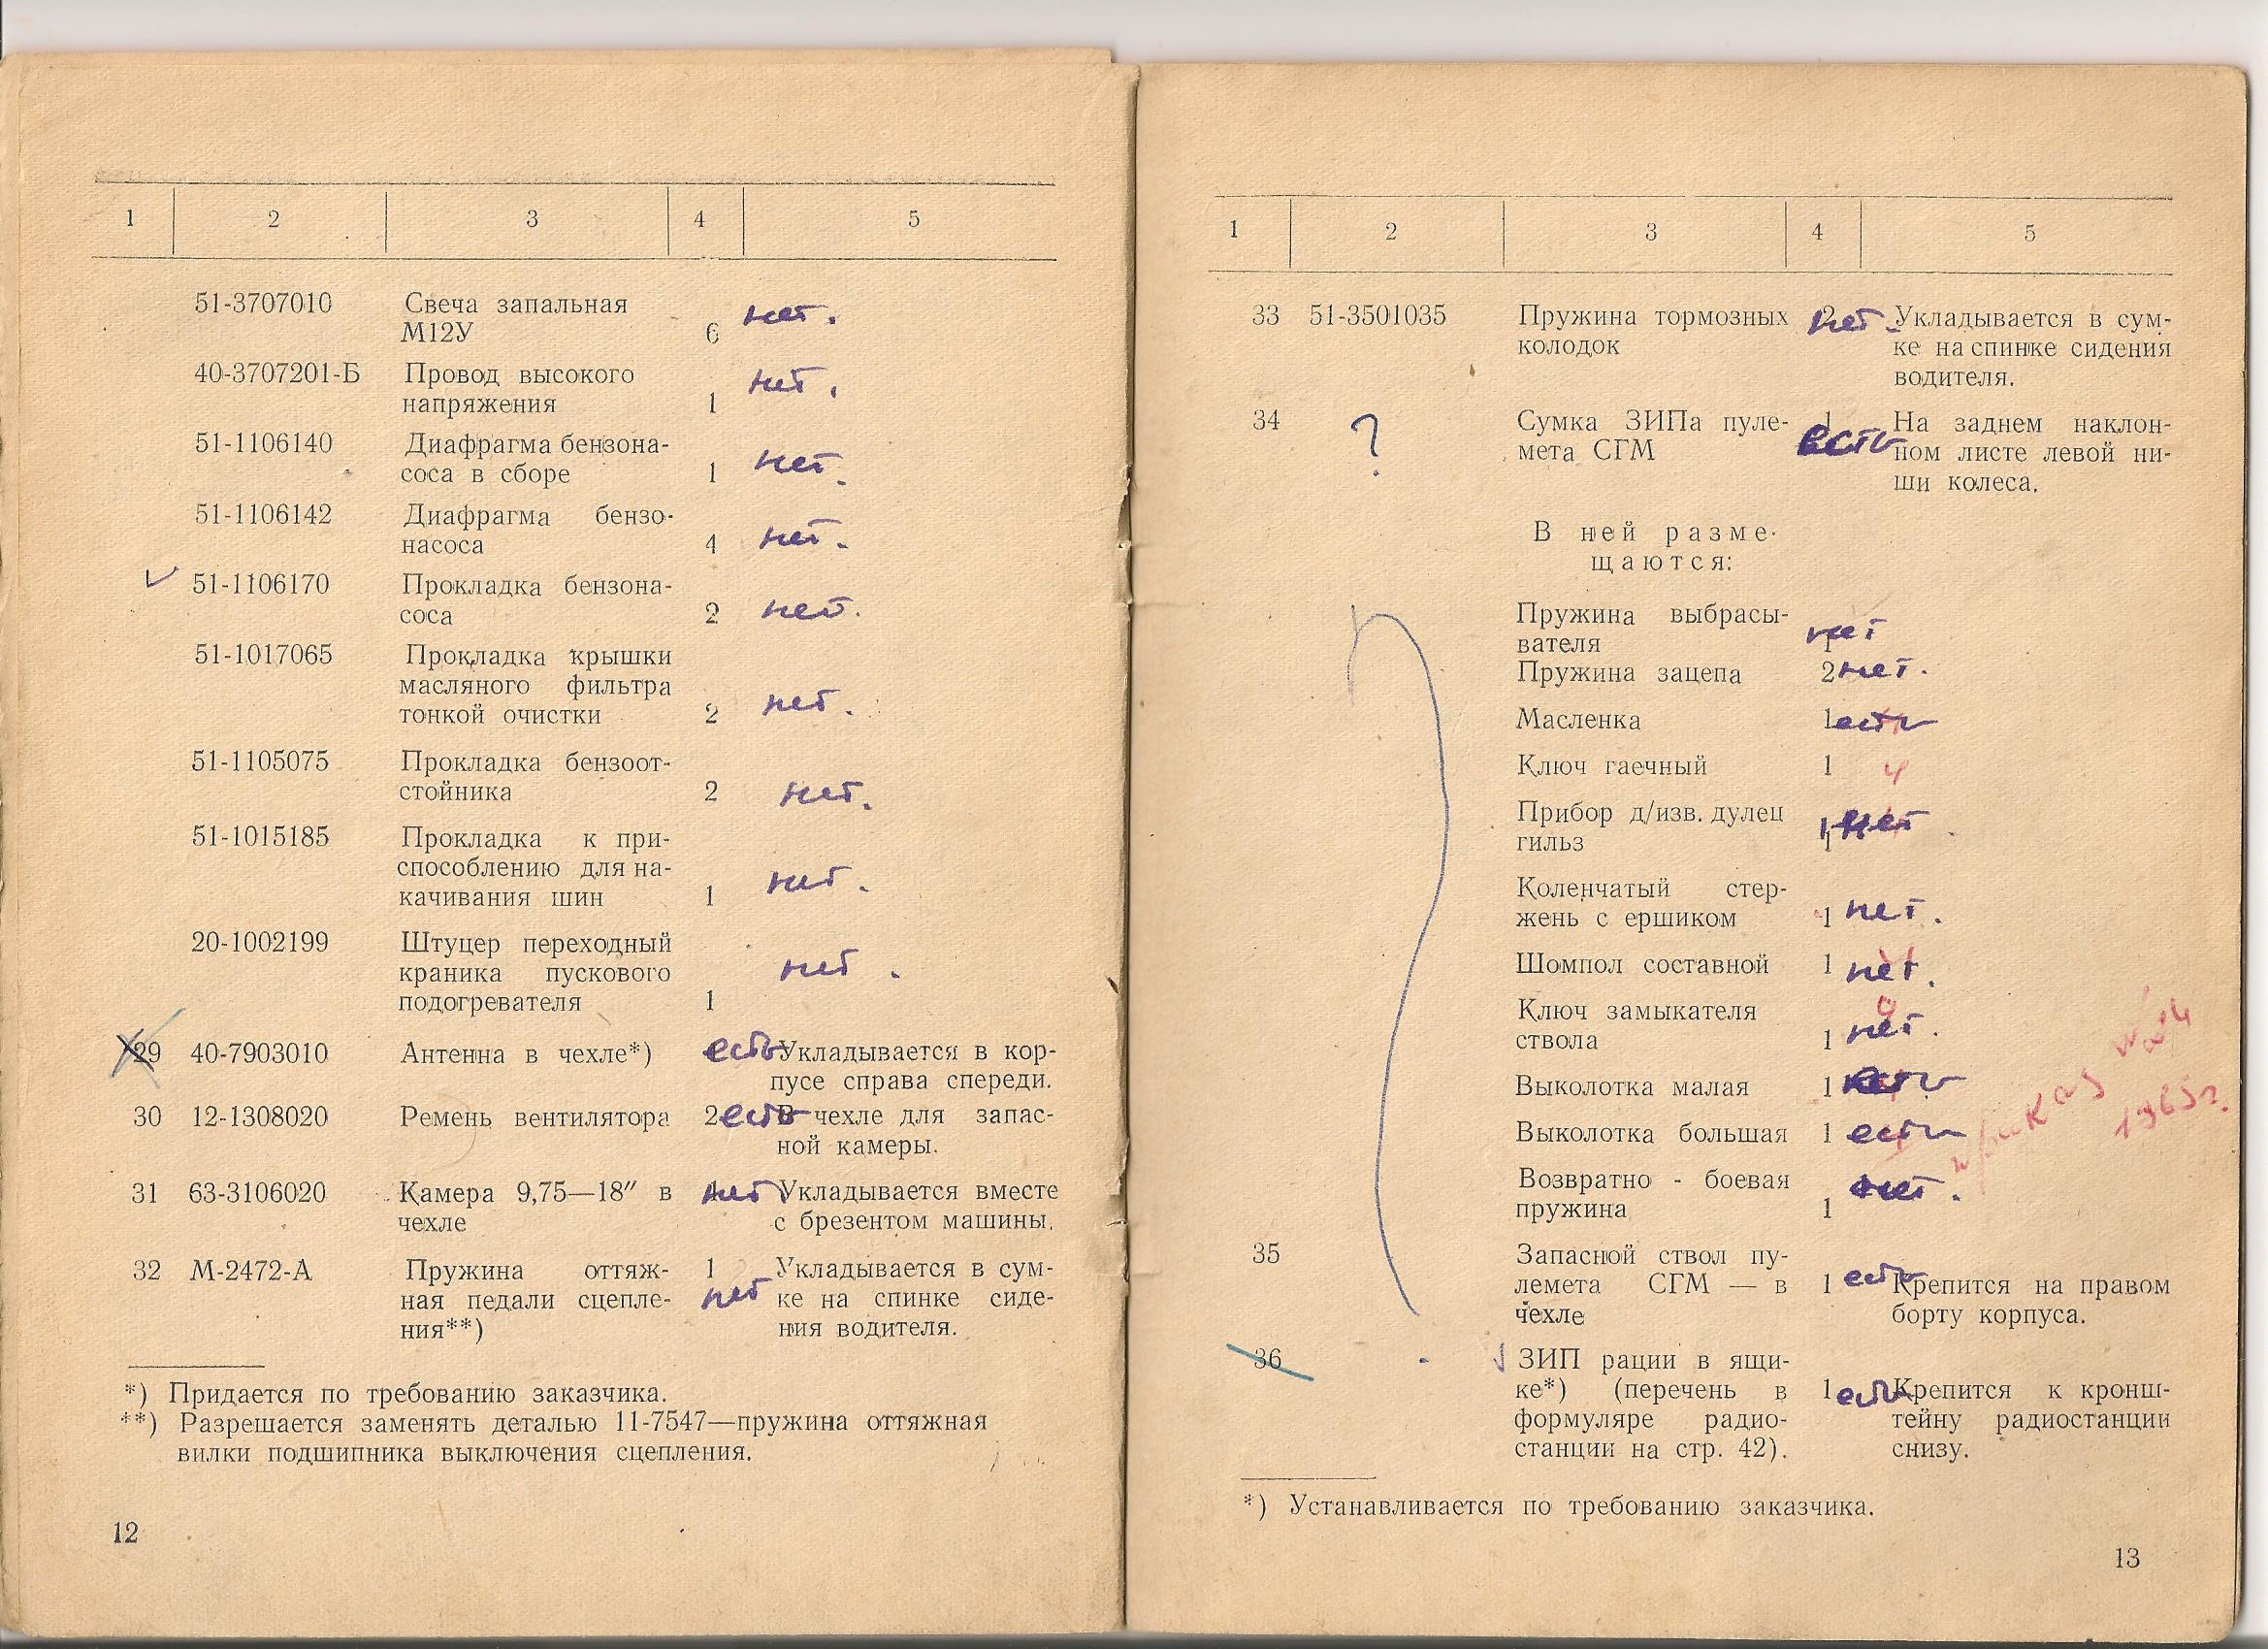 1 2 3 4 5
51-3707010 Свеча запальная
М12У 6 нет.
40-3707201-Б Провод высокого
напряжения 1 нет.
51-1106140 Диафрагма бензона-
соса в сборе 1 нет.
51-1106142 Диафрагма бензо-
насоса 4 нет.
51-1106170 Прокладка бензона-
соса 2 нет.
51-1017065 Прокладка крышки
масляного фильтра
тонкой очистки 2 нет.
51-1105075 Прокладка бензоот-
стойника 2 нет.
51-1015185 Прокладка к при-
способлению для на-
качивания шин 1 нет.
20-1002199 Штуцер переходный
краника пускового
подогревателя 1 нет.
29 40-7903010 Антенна в чехле*) есть Укладывается в кор-
пусе справа спереди.
30 12-1308020 Ремень вентилятора 2 есть В чехле для запас-
ной камеры.
31 63-3106020 Камера 9,75—18″ в нет Укладывается вместе
чехле с брезентом машины.
32 М-2472-А Пружина оттяж- 1 Укладывается в сум-
ная педали сцепле- нет ке на спинке сиде-
ния**) ния водителя.
*) Придается по требованию заказчика.
**) Разрешается заменять деталью 11-7547—пружина оттяжная
вилки подшипника выключения сцепления.
12
1 2 3 4 5
33 51-3501035 Пружина тормозных 2 нет. Укладывается в сум-
колодок ке на спинке сидения
водителя.
34 ? Сумка ЗИПа пуле- 1 есть На заднем наклон-
мета СГМ ном листе левой ни-
ши колеса.
В ней разме-
щаются:
Пружина выбрасы-
вателя 1 нет
Пружина зацепа 2 нет.
Масленка 1 есть
Ключ гаечный 1
Прибор д/изв. дулец
гильз 1 нет.
Коленчатый стер-
жень с ершиком 1 нет.
Шомпол составной 1 нет.
Ключ замыкателя
ствола 1 нет.
Выколотка малая 1 есть
Выколотка большая 1 есть
Возвратно - боевая
пружина 1 нет.
приказ №24
1965г.
35 Запасной ствол пу-
лемета СГМ — в 1 есть Крепится на правом
чехле борту корпуса.
36 ЗИП рации в ящи-
ке*) (перечень в 1 есть Крепится к кронш-
формуляре радио- тейну радиостанции
станции на стр. 42). снизу.
*) Устанавливается по требованию заказчика.
13